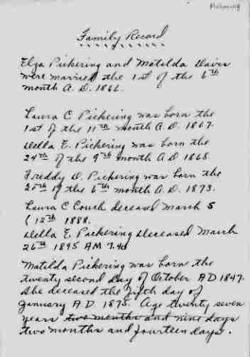 Family Record
Elza Pickering and Matilda
were married the 1st of the 6th
month A.D. 1866.
Laura C Pickering was born the
1st of the 11th month A.D. 1867.
Della E. Pickering was born the
24th of the 9th month A D 1868.
Freddy D. Pickering was born the
20th of the 6th month A.D. 1873.
Laura C Couch deceased March 5
1888.
Della E. Packering Deceased March
26th 1895 AM
Matilda Pickering was born the
twenty second day of October AD 1847.
She deceased the fifth day of
January A D 1875. Age twenty seven
years two months and nine days
two months and fourteen days.